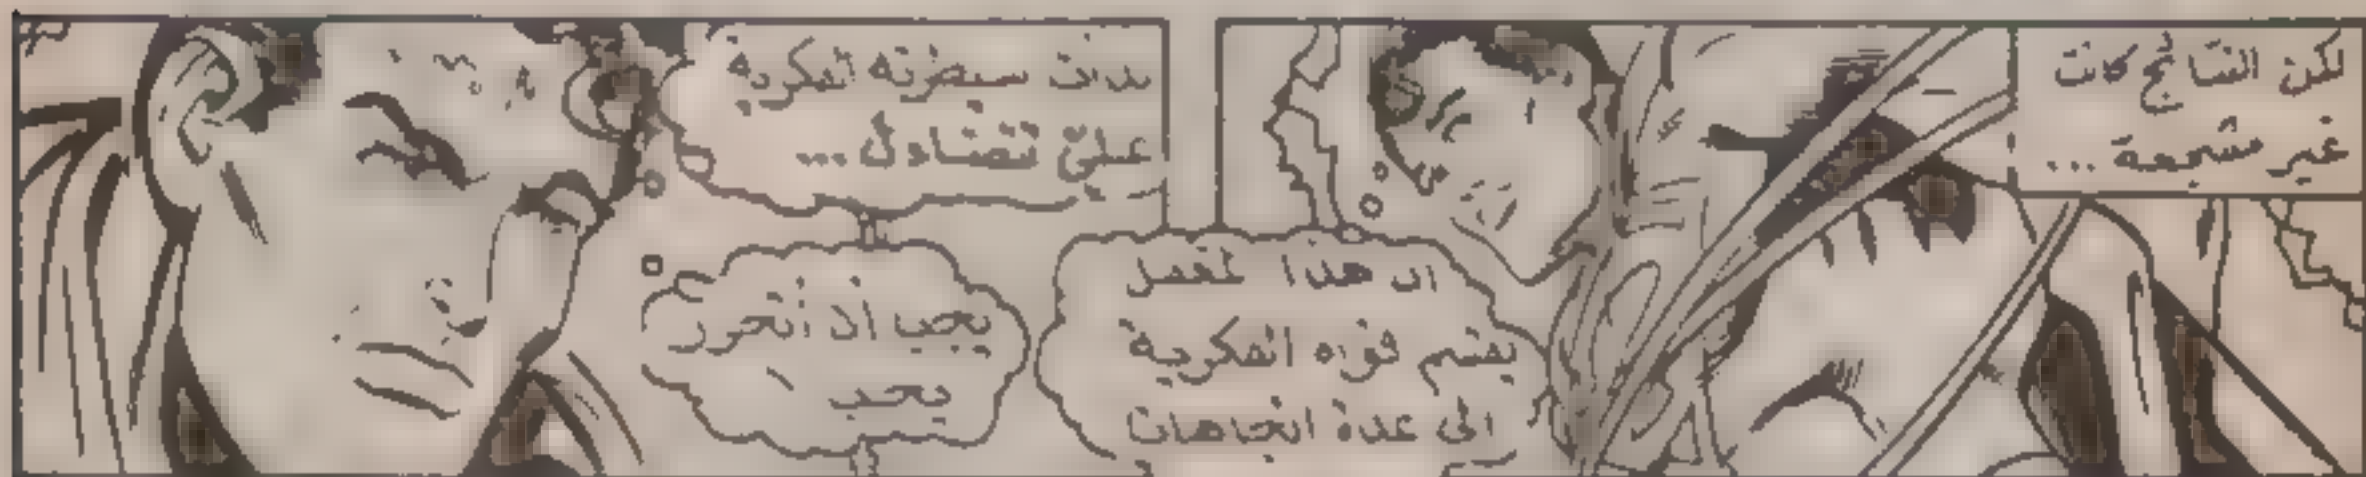 لكن النتائج كانت
غير مشجعة ...
ان هذا المغفل
يقسم قواه الفكرية
الى عدة اتجاهات
بدأت سيطرته الفكرية
علىّ تتضاءل ...
يجب أن أتحرر
يجب